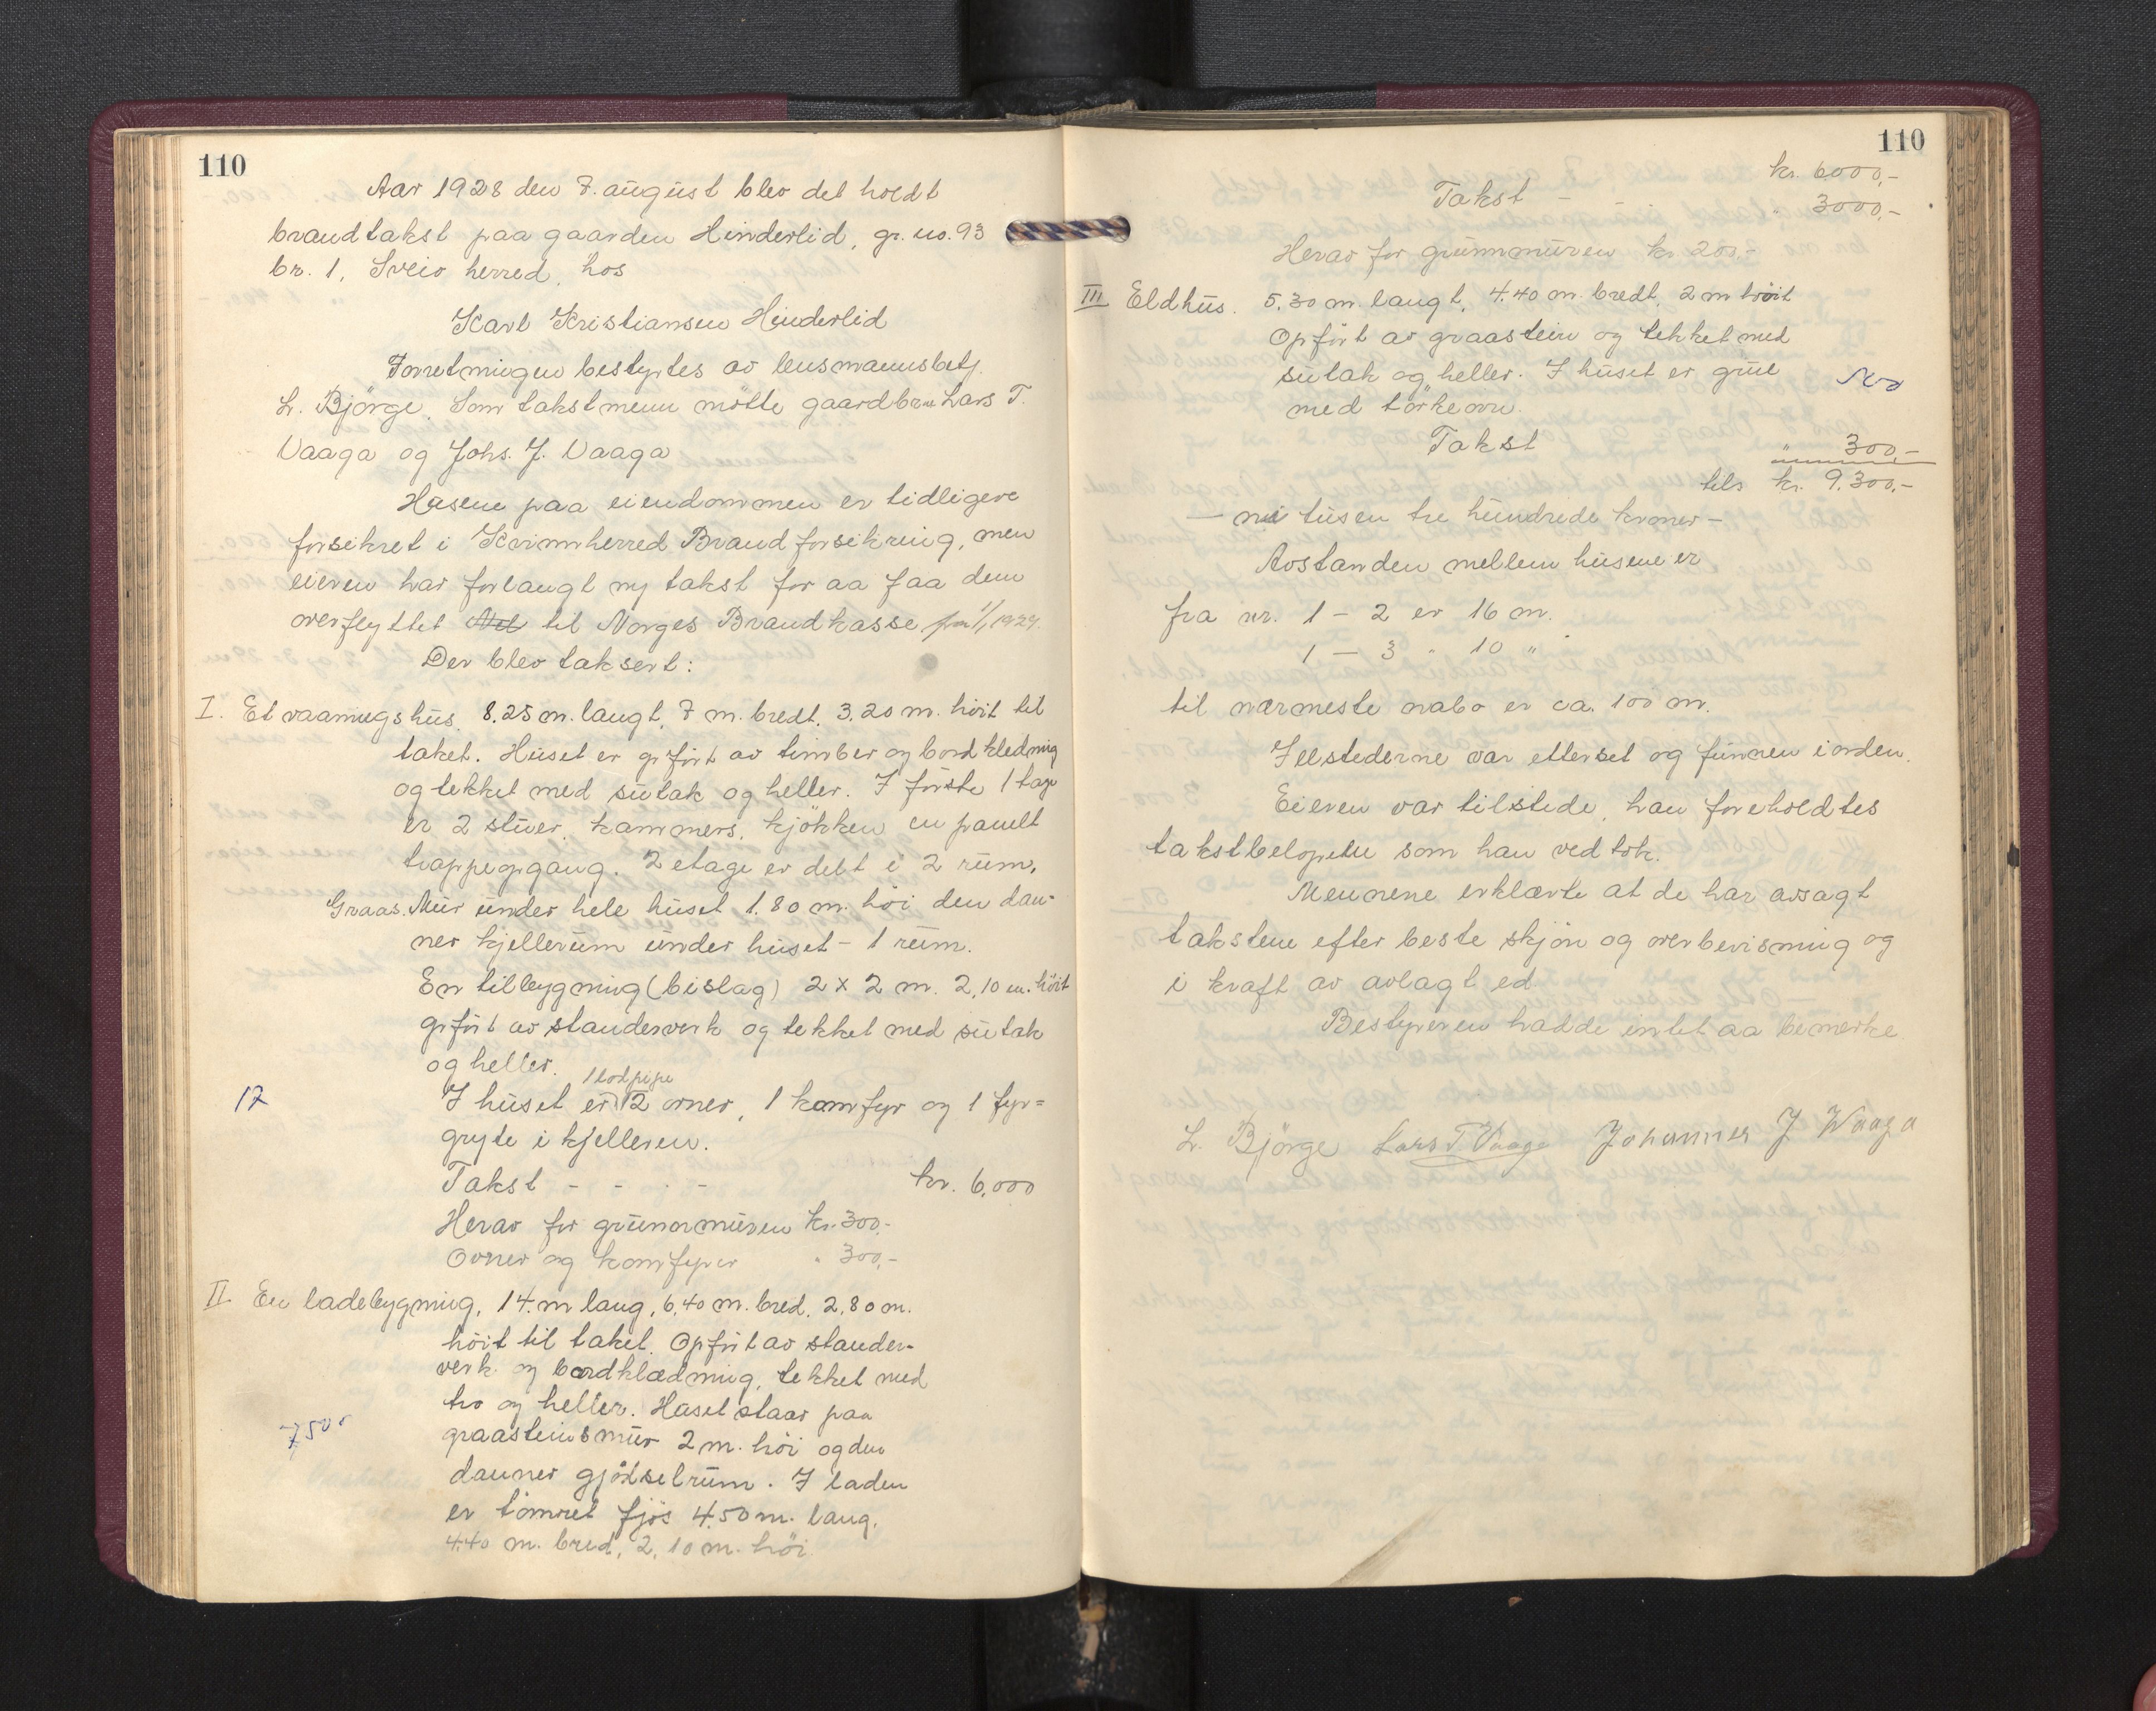 110
Aar 1928 den 7. august blev det holdt
brandtakst paa gaarden Hinderlid, gr. no. 93
br. 1, Sveio herred, hos
Karl Kristiansen Hinderlid
Forretningen bestyrtes av lensmannsbetj.
L. Björge. Som takstmenn mötte gaardbr. Lars T.
Vaaga og Johs. J. Vaaga
Husene paa eiendommen er tidligere
forsikret i Kvinnherred Brandforsikring, men
eieren har forlangt ny takst for aa faa dem
overflyttet til Norges Brandkasse fra 1/1 1929.
Der blev taksert:
I. Et vaaningshus 8.25 m. langt, 7 m. bredt, 3.20 m. höit til
taket. Huset er opfört av timber og bordkledning
og tekket med sutak og heller. I förste 1 tage
er 2 stuer, kammers, kjökken en panelt
trappeopgang. 2 etage er delt i 2 rum.
Graas. Mur under hele huset 1.80 m. höi den dan-
ner kjellerum under huset - 1 rum.
En tilbygning (bislag) 2 x 2 m. 2,10 m. höit
opfört av standerverk og tekket med sutak
og heller.
1 lodpipe
17
I huset er 2 ovner, 1 komfyr og 1 fyr=
gryte i kjelleren.
Takst - - - - kr. 6,000
Herav for grunnmuren kr. 300.-
Ovner og komfyrer " 300,-
II. En ladebygning, 14. m lang, 6,40 m. bred, 2,80 m.
höit til taket. Opfört av stander-
verk og bordklædning, tekket med
tro og heller. Huset staar paa
7500
graasteinsmur 2 m. höi og den
danner gjödselrum. I laden
er tömret fjös 4.50 m. lang,
4.40 m. bred, 2,10 m. höi.
110
kr. 6000,-
Takst - - - " 3000,-
Herav for grunnmuren kr. 200,-
III Eldhus. 5.30 m. langt, 4.40 m. bredt, 2 m höit
Opfört av graastein og tekket med
sutak og heller. I huset er grue
med törkeovn.
Takst " 300,-
tils kr. 9.300,-
- ni tusen tre hundrede kroner -
Avstanden mellem husene er
fra nr. 1 - 2 er 16 m.
1 - 3 " 10 "
til nærmeste nabo er ca. 100 m.
Ildstederne var etterset og funnen i orden.
Eieren var tilstede, han foreholdtes
takstbelopene som han vedtok.
Mennene erklærte at de har avsagt
takstene efter beste skjön og overbevisning og
i kraft av avlagt ed.
Bestyreren hadde intet aa bemerke.
L. Björge Lars T. Vaage Johannes J Waaga